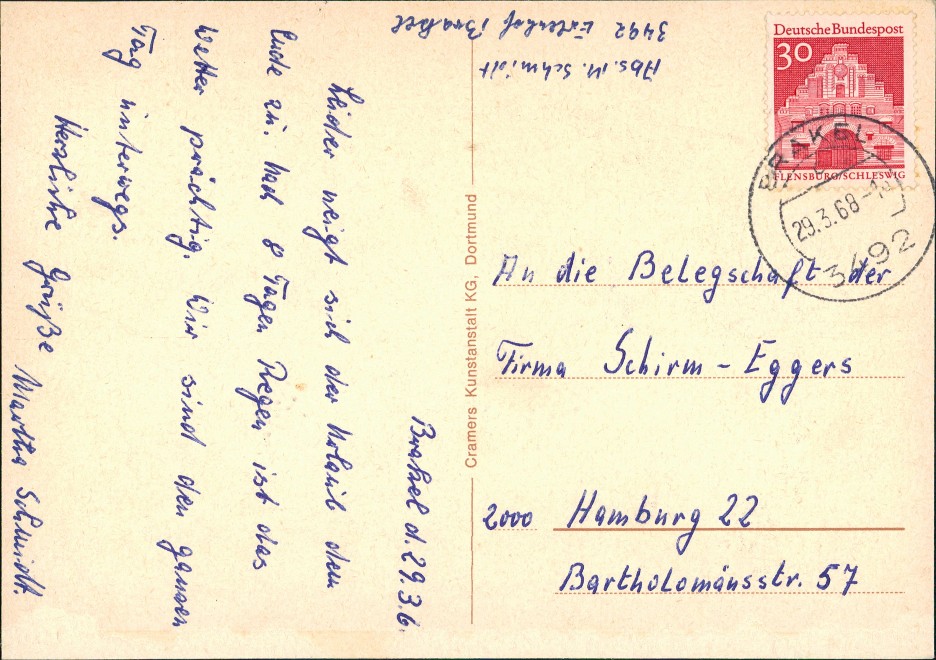 Abs. M. Schmidt
3492 Erlenhof Brakel
Brakel d. 29.3.6
Leider neigt sich der Urlaub dem
Ende zu. Nach 8 Tagen Regen ist das
Wetter prächtig. Wir sind den ganzen
Tag unterwegs.
Herzliche Grüße Martha Schmidt.
Cramers Kunstanstalt KG, Dortmund
Deutsche Bundespost
30
FLENSBURG/SCHLESWIG
BRAKEL
29.3.68
3492
An die Belegschaft der
Firma Schirm - Eggers
2000 Hamburg 22
Bartholomäusstr. 57